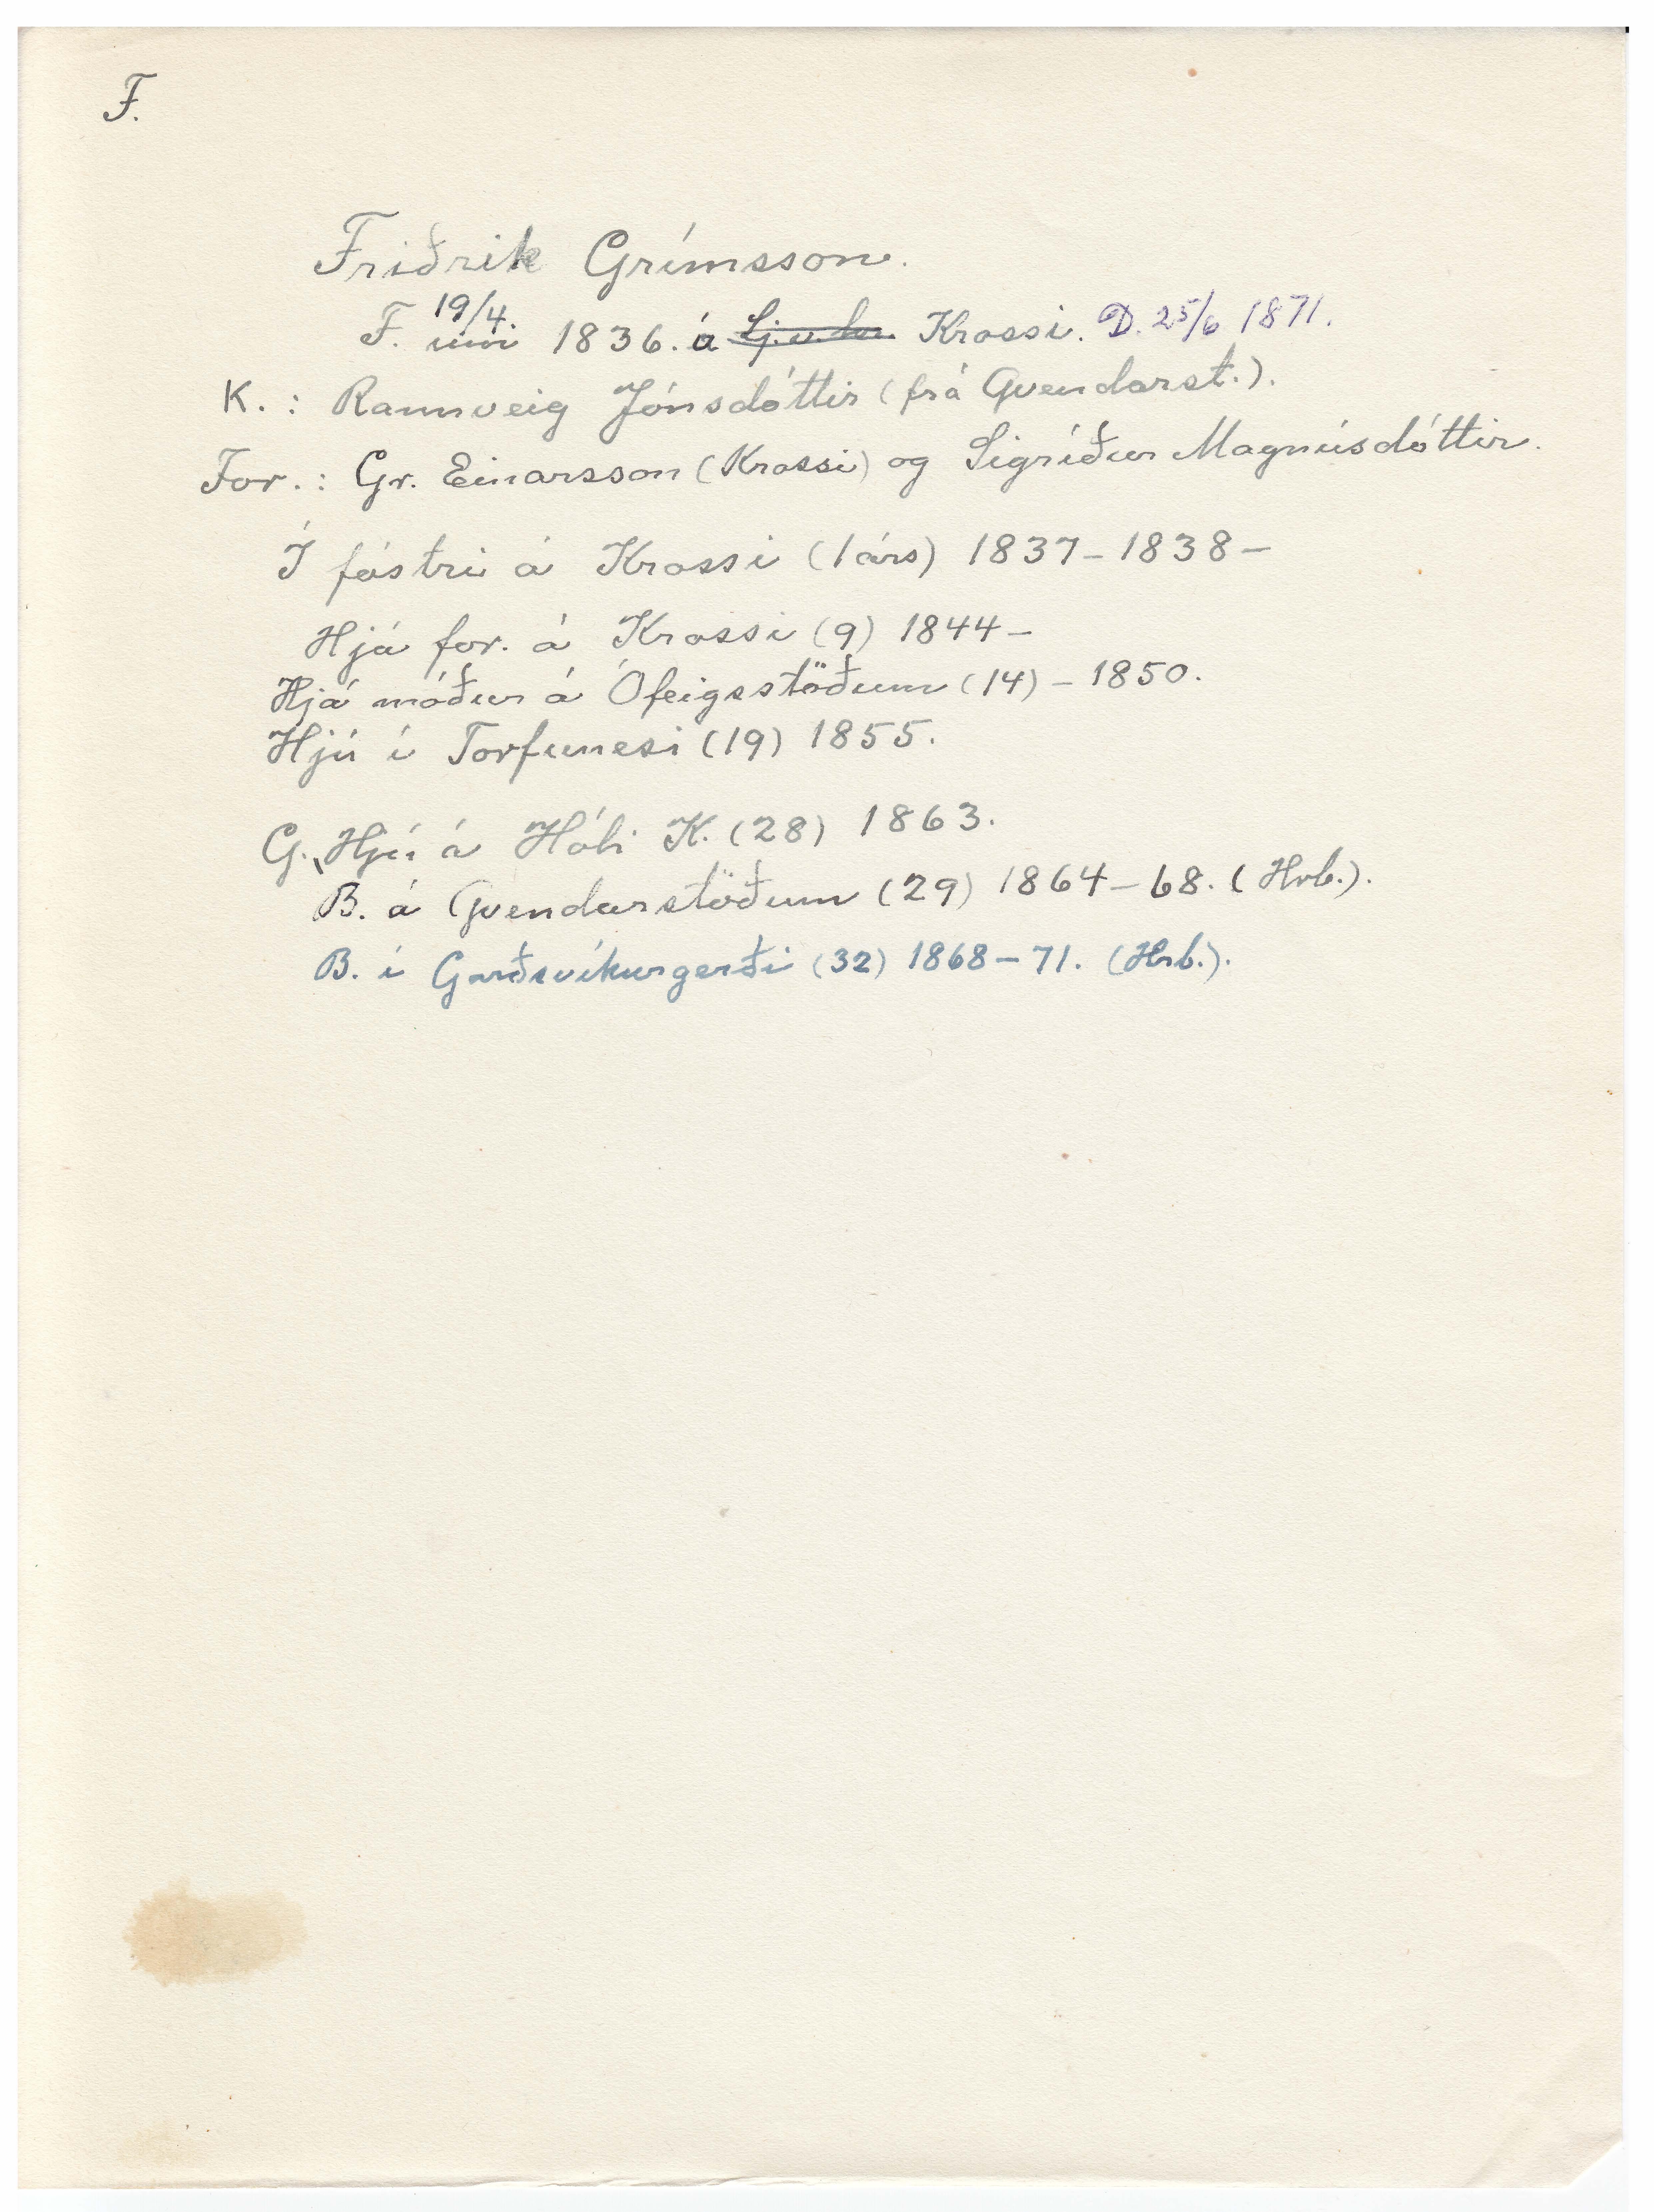 F.
Friðrik Grímsson.
19/4.
F. um 1836. á Krossi. D. 25/6 1871.
K. : Rannveig Jónsdóttir (frá Gvendarst.).
For. : Gr. Einarsson (Krossi) og Sigríður Magnúsdóttir.
Í fóstri á Krossi (1 árs) 1837-1838-
Hjá for. á Krossi (9) 1844-
Hjá móður á Ófeigsstöðum (14) - 1850.
Hjú í Torfunesi (19) 1855.
G. Hjú á Hóli K. (28) 1863.
B. á Gvendarstöðum (29) 1864-68. (Hrb.).
B. í Garðsvíkurgerði (32) 1868-71. (Hrb.).